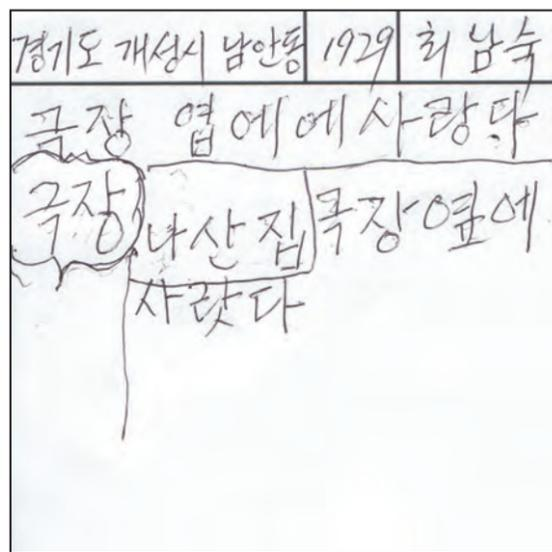 경기도 개성시 남안동 1929 최남숙
극장 엽에에사랑다
극장 나산집 극장옆에
사랏다